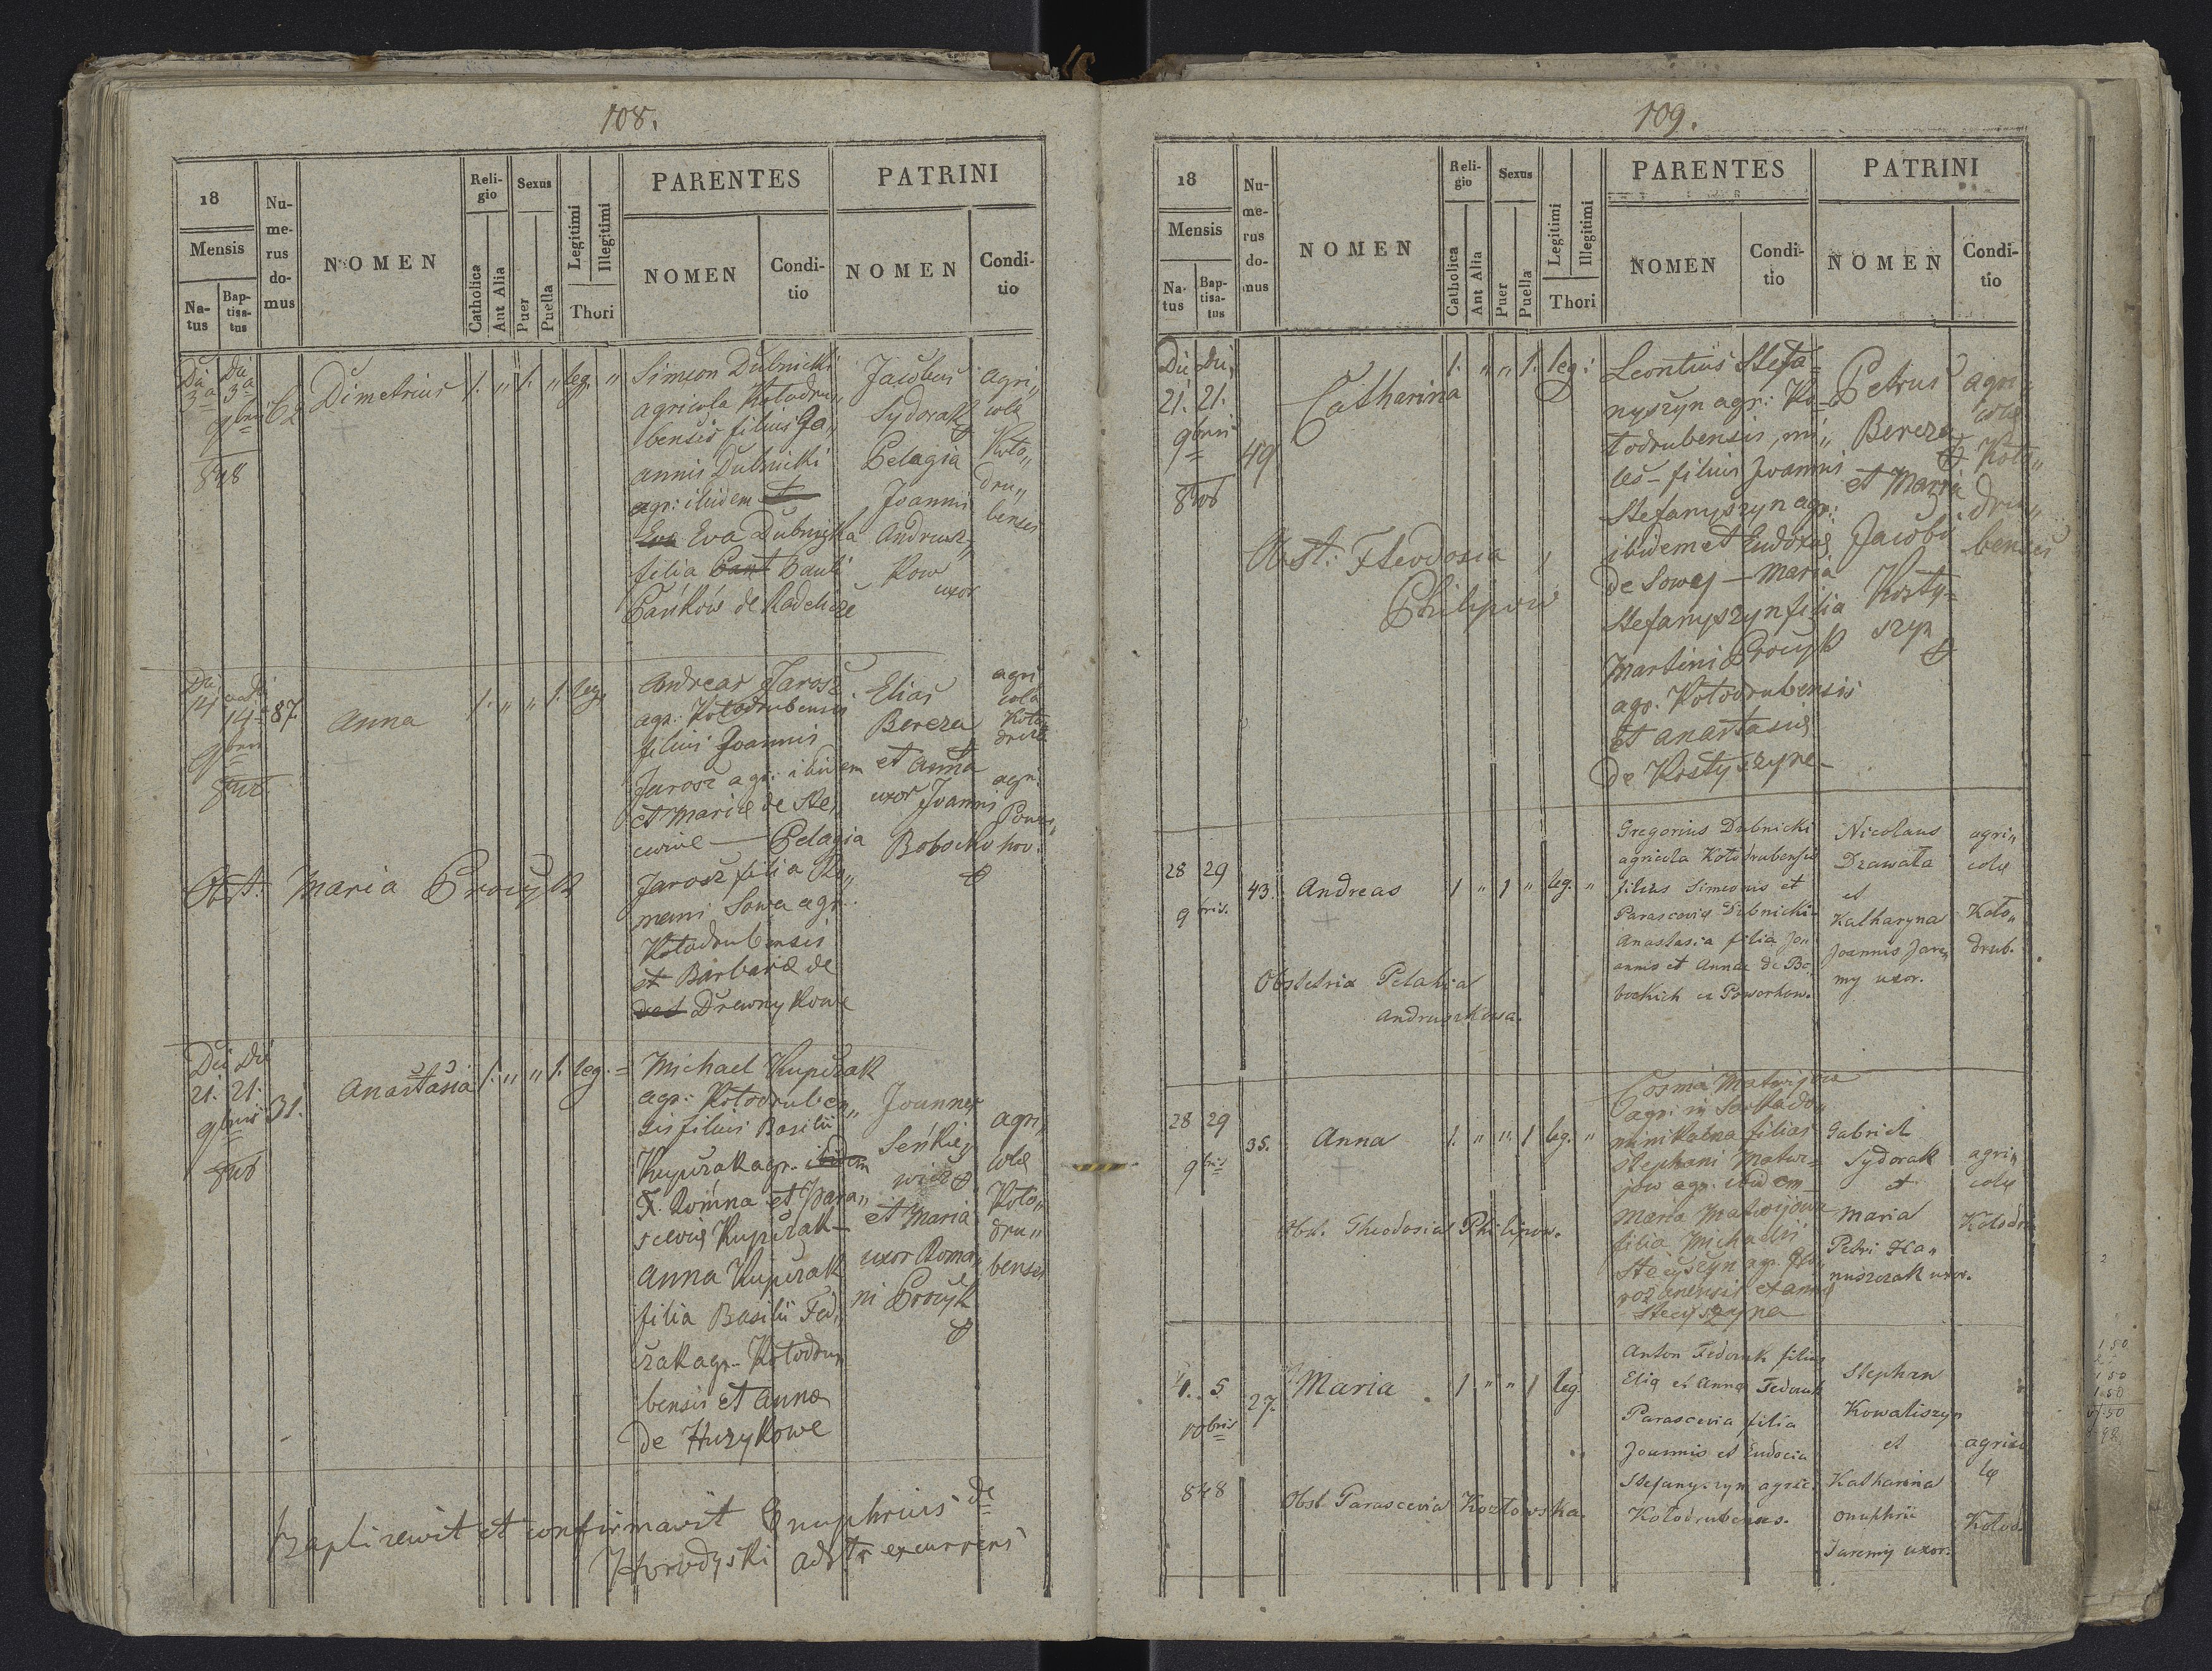 108.
18
Mensis
Na-
tus
Bap-
tisa-
tus
Nu-
me-
rus
do-
mus
NOMEN
Reli-
gio
Catholica
Aut Alia
Sexus
Puer
Puella
Legitimi
Illegitimi
Thori
PARENTES
NOMEN
Condi-
tio
PATRINI
NOMEN
Condi-
tio
3a 3a
9bris
848
62
Dimetrius
1. " 1. " leg. "
Simeon Dubnicki
agricola Kołodru„
bensis filius Jo„
annis Dubnicki
agr: ibidem et
Eva Eva Dubnicka
filia Pauli
Pańków de Radelicze
Jacobus
Sydorak
Pelagia
Joannis
Andrusz„
Kow
uxor
agri„
colæ
Koło„
dru„
bensis
14 14
9bris
848
87.
Anna
1. " " 1. leg.
Andreas Jarosz
agr: Kołodrubensis
filius Joannis
Jarosz agr: ibidem
et Mariæ de Ste„
— Pelagia
Jarosz filia Ro„
mani Sowa agr.
Kołodrubensis
et Barbaræ de
Drewnykowe
Elias
Bereza
et Anna
uxor Joannis
Bobocko
agri
cola
Koło
drub
agri.
Powe„
hov.
Obst: Maria Procyk
Die Die
21. 21.
9bris
848
31.
Anastasia
1. " " 1. leg. =
Michael Kupczak
agr: Kołodruben„
sis filius Basilii
Kupczak agr. ibidem
F. Romna et Para„
sceviæ Kupczak —
Anna Kupczak
filia Basilii Fed„
czak agr. Kołodru„
bensis et Anna
de Huzykowe
Joannes
Seńkie„
wicz
et Maria
uxor Roma„
ni Procyk
agri„
colæ
Koło„
dru„
benses
baptizavit et confirmavit Onuphrius de
Horodyski adstr excurrens
109.
18
Mensis
Na-
tus
Bap-
tisa-
tus
Nu-
me-
rus
do-
mus
NOMEN
Reli-
gio
Catholica
Aut Alia
Sexus
Puer
Puella
Legitimi
Illegitimi
Thori
PARENTES
NOMEN
Condi-
tio
PATRINI
NOMEN
Condi-
tio
Die Die
21. 21.
9bris
848
49
Catharina
1. " " 1. leg:
Leontius Stefa=
nyszyn agr: Ko=
łodrubensis, mi„
les — filius Joannis
Stefanyszyn agr:
ibidem et Eudoxiæ
de Sowej — Maria
Stefanyszyn filia
Martini Procyk
agr. Kołodrubensis
et Anastasiæ
de Kostyszyne —
Petrus
Bereza
et Maria
Jacobi
Kosty=
szyn
agri„
colæ
Koło„
dru„
benses
Obst: Theodosia
Philipow
28 29
9bris.
43.
Andreas
1 " 1 " leg. "
Gregorius Dubnicki
agricola Kołodrubensis
filius Simeonis et
Parascevia Dubnicki
Anastasia filia Jo„
annis et Annae de Bo„
bockich
Nicolaus
Drawała
et
Katharyna
Joannis Jare„
my uxor.
agri„
colæ
Koło„
drub.
Obstetrix Pelahia
Andruszkowa.
28 29
9bris
35.
Anna
1. " " 1 leg. "
Cosma Matwijow
agr: in
filius
Stephani Matwi=
jow agr. ibidem —
Maria Matwijowa
filia Michaelis
Stecyszyn agr.
et Anna
Stecyszyna
Gabriel
Sydorak
et
Maria
Petri Ha„
nuszczak uxor.
agri„
colæ
Kołodr
Obst. Theodosia Philipow.
4. 5
10bris
848
27.
Maria
1 " " 1 leg
Anton Fedorak filius
Eliæ et Anna Fedorak
Parascevia filia
Joannis et Eudocia
Stefanyszyn agric.
Kołodrubenses.
Stephan
Kowaliszyn
et
Katharina
Onuphrii
Jaremy uxor.
agrico
læ
Kołod.
Obst Parascevia Kozłowska.